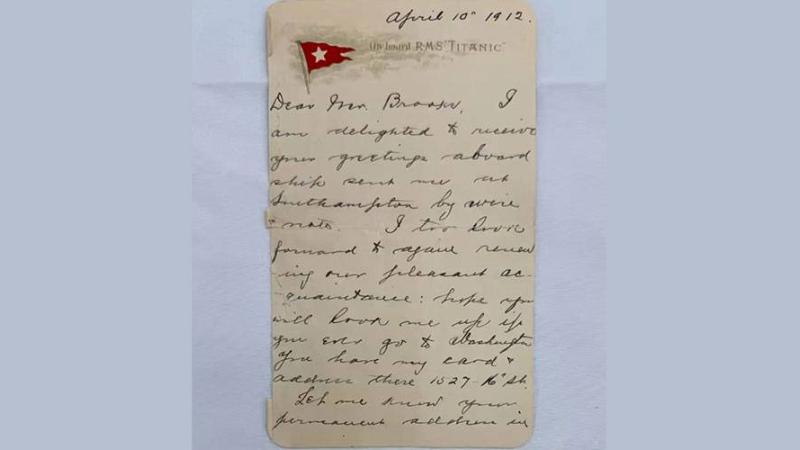 April 10" 1912.
On board R.M.S "TITANIC"
Dear Mr. Brooks, I
am delighted to receive
your greetings aboard
ship sent me at
Southampton by wire
& note. I too look
forward to again renew
ing our pleasant ac-
quaintance: hope you
will look me up if
you ever go to Washington
You have my card &
address there 1527-16" St.
Let me know your
permanent address in